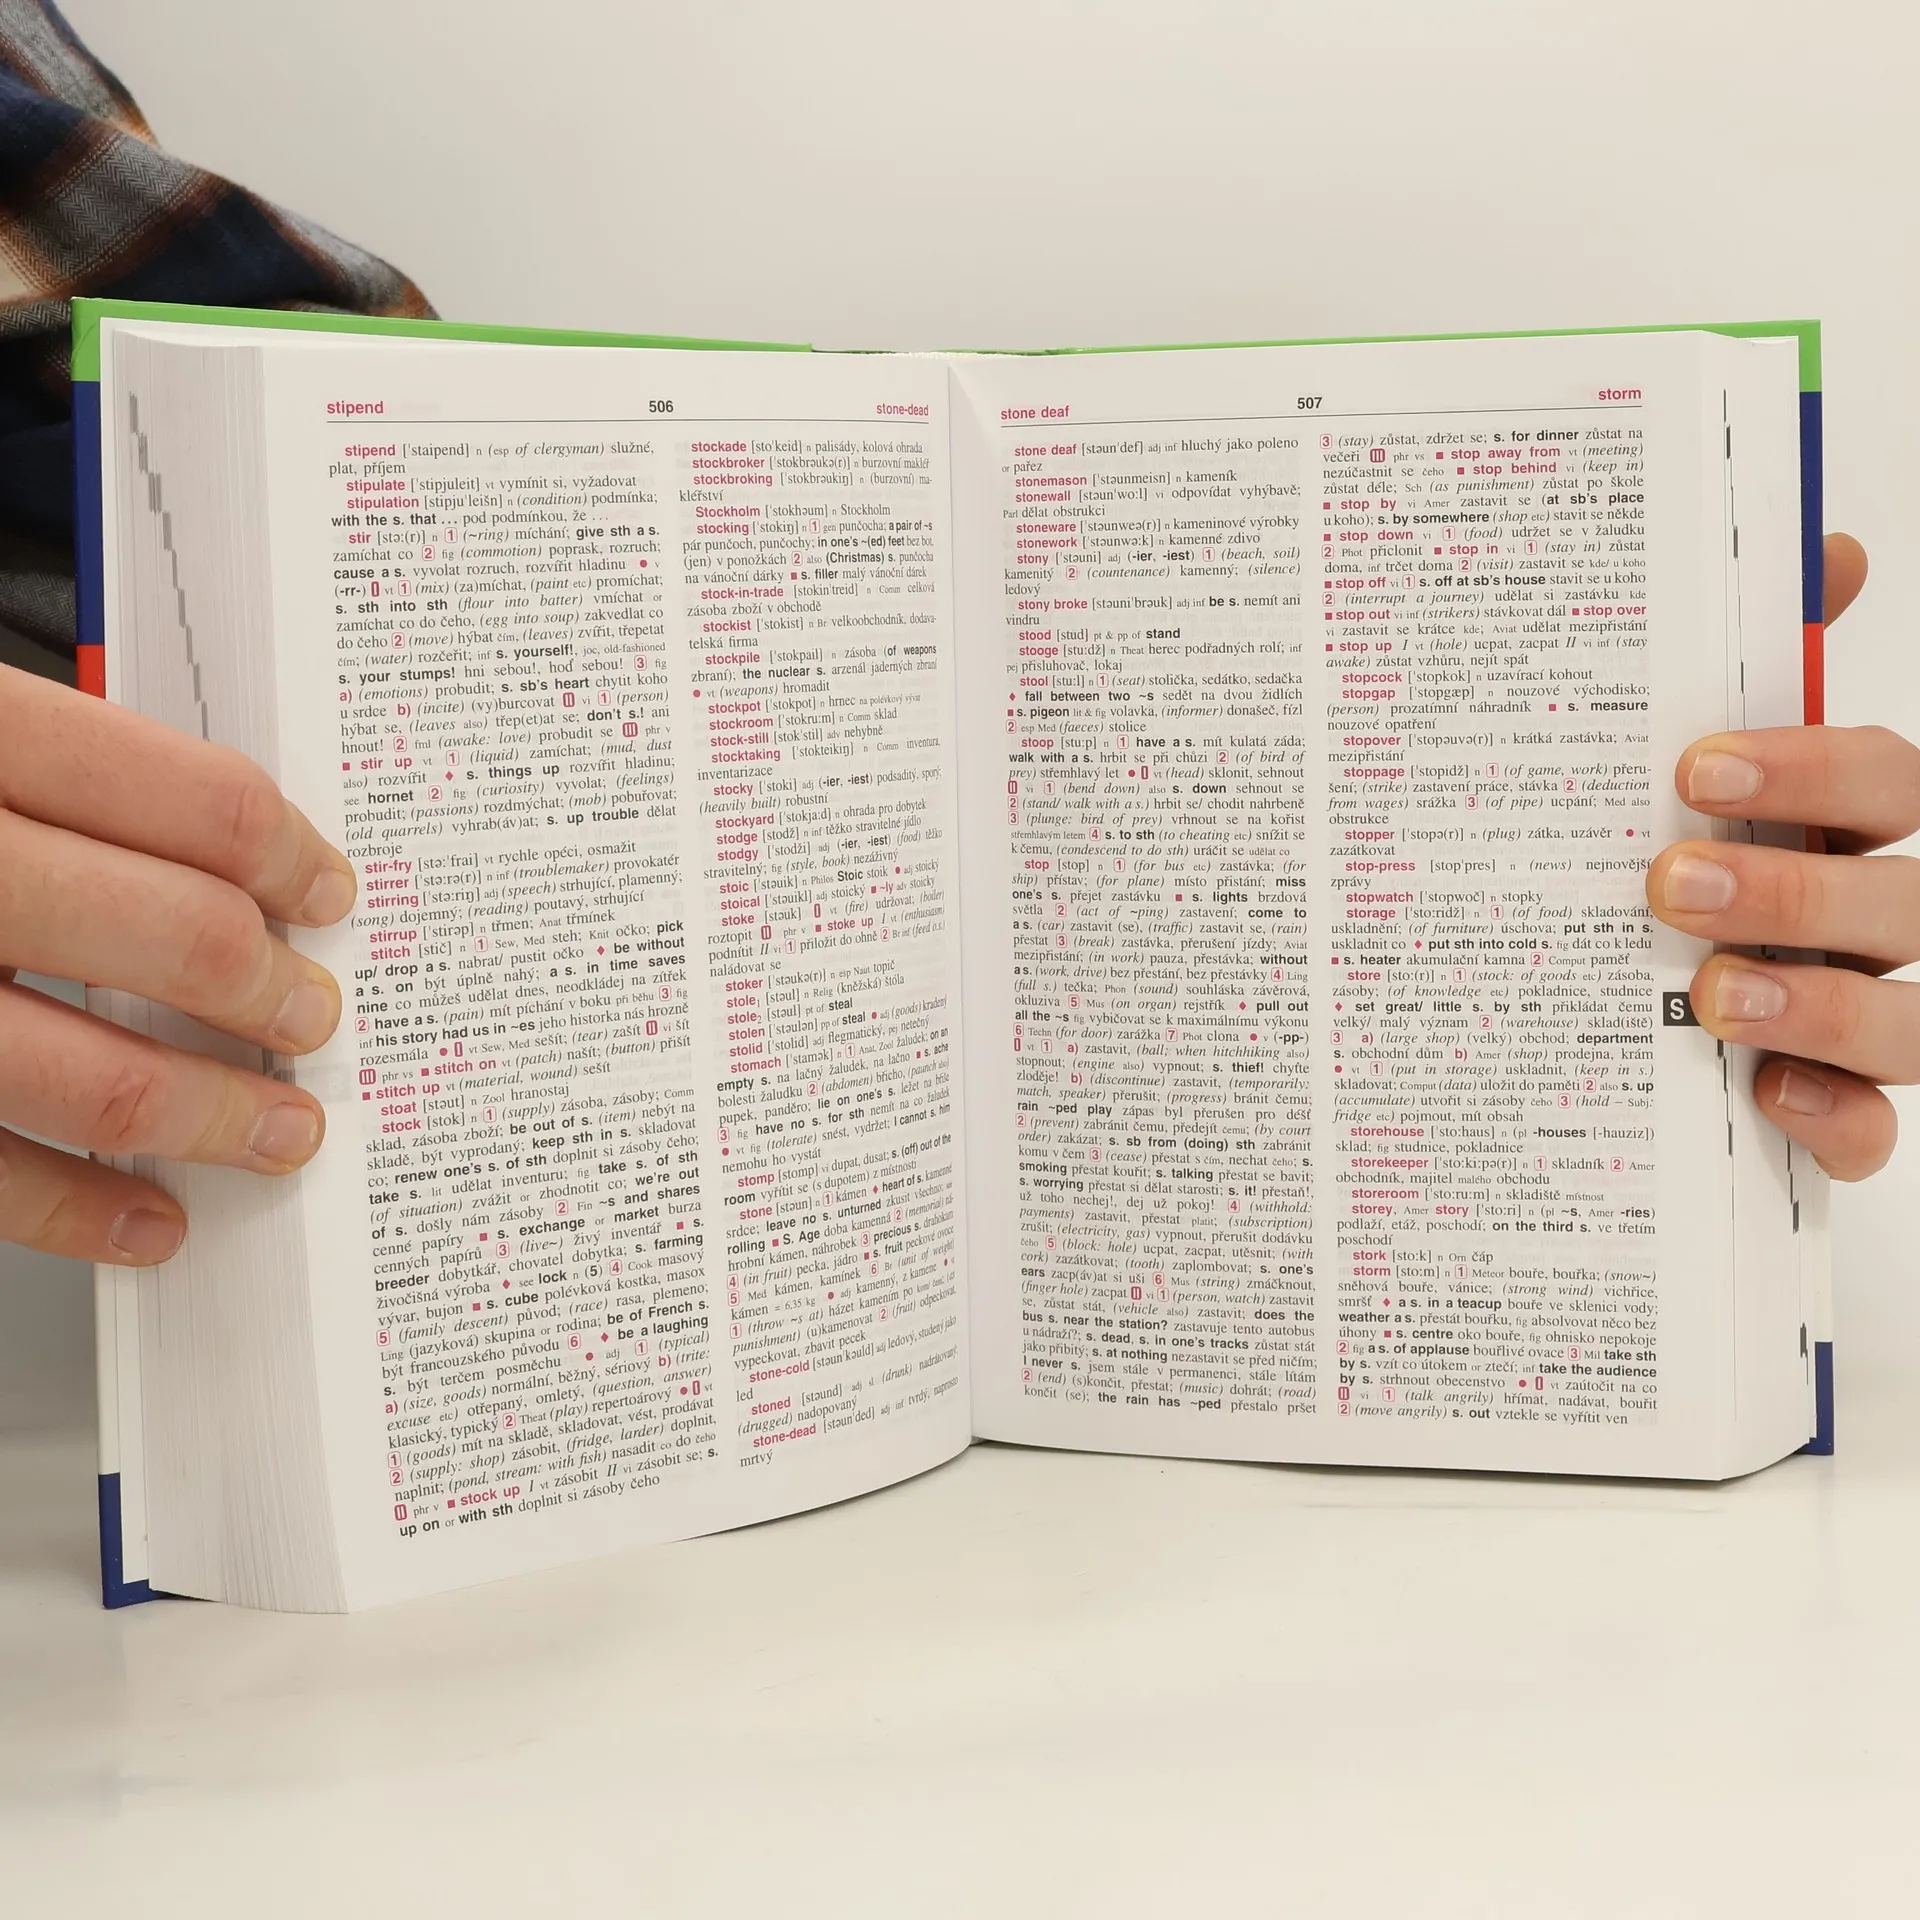 stipend
506
stone-dead
stipend ['staipend] n (esp of clergyman) služné,
plat, příjem
stipulate ['stipjuleit] vt vymínit si, vyžadovat
stipulation [stipju'leišn] n (condition) podmínka;
with the s. that … pod podmínkou, že …
stir [stə:(r)] n 1 (~ring) míchání; give sth a s.
zamíchat co 2 fig (commotion) poprask, rozruch;
cause a s. vyvolat rozruch, rozvířit hladinu ● v
(-rr-) I vt 1 (mix) (za)míchat, (paint etc) promíchat;
s. sth into sth (flour into batter) vmíchat or
zamíchat co do čeho, (egg into soup) zakvedlat co
do čeho 2 (move) hýbat čím, (leaves) zvířit, třepetat
čím; (water) rozčeřit; inf s. yourself!, joc, old-fashioned
s. your stumps! hni sebou!, hoď sebou! 3 fig
a) (emotions) probudit; s. sb's heart chytit koho
u srdce b) (incite) (vy)burcovat II vi 1 (person)
hýbat se, (leaves also) třep(et)at se; don't s.! ani
hnout! 2 fml (awake: love) probudit se III phr v
■ stir up vt 1 (liquid) zamíchat; (mud, dust
also) rozvířit ♦ s. things up rozvířit hladinu;
see hornet 2 fig (curiosity) vyvolat; (feelings)
probudit; (passions) rozdmýchat; (mob) pobuřovat;
(old quarrels) vyhrab(áv)at; s. up trouble dělat
rozbroje
stir-fry [stə:'frai] vt rychle opéci, osmažit
stirrer ['stə:rə(r)] n inf (troublemaker) provokatér
stirring ['stə:riŋ] adj (speech) strhující, plamenný;
(song) dojemný; (reading) poutavý, strhující
stirrup ['stirəp] n třmen; Anat třmínek
stitch [stič] n 1 Sew, Med steh; Knit očko; pick
up/ drop a s. nabrat/ pustit očko ♦ be without
a s. on být úplně nahý; a s. in time saves
nine co můžeš udělat dnes, neodkládej na zítřek
2 have a s. (pain) mít píchání v boku při běhu 3 fig
inf his story had us in ~es jeho historka nás hrozně
rozesmála ● I vt Sew, Med sešít; (tear) zašít II vi šít
III phr vs ■ stitch on vt (patch) našít; (button) přišít
■ stitch up vt (material, wound) sešít
stoat [stəut] n Zool hranostaj
stock [stok] n 1 (supply) zásoba, zásoby; Comm
sklad, zásoba zboží; be out of s. (item) nebýt na
skladě, být vyprodaný; keep sth in s. skladovat
co; renew one's s. of sth doplnit si zásoby čeho;
take s. lit udělat inventuru; fig take s. of sth
(of situation) zvážit or zhodnotit co; we're out
of s. došly nám zásoby 2 Fin ~s and shares
cenné papíry ■ s. exchange or market burza
cenných papírů 3 (live~) živý inventář ■ s.
breeder dobytkář, chovatel dobytka; s. farming
živočišná výroba ♦ see lock n (5) 4 Cook masový
vývar, bujon ■ s. cube polévková kostka, masox
5 (family descent) původ; (race) rasa, plemeno;
Ling (jazyková) skupina or rodina; be of French s.
být francouzského původu 6 ♦ be a laughing
s. být terčem posměchu ● adj 1 (typical)
a) (size, goods) normální, běžný, sériový b) (trite:
excuse etc) otřepaný, omletý, (question, answer)
klasický, typický 2 Theat (play) repertoárový ● I vt
1 (goods) mít na skladě, skladovat, vést, prodávat
2 (supply: shop) zásobit, (fridge, larder) doplnit,
naplnit; (pond, stream: with fish) nasadit co do čeho
II phr v ■ stock up I vt zásobit II vi zásobit se; s.
up on or with sth doplnit si zásoby čeho
stockade [sto'keid] n palisády, kolová ohrada
stockbroker ['stokbrəukə(r)] n burzovní makléř
stockbroking ['stokbrəukiŋ] n (burzovní) ma-
kléřství
Stockholm ['stokhəum] n Stockholm
stocking ['stokiŋ] n 1 gen punčocha; a pair of ~s
pár punčoch, punčochy; in one's ~(ed) feet bez bot,
(jen) v ponožkách 2 also (Christmas) s. punčocha
na vánoční dárky ■ s. filler malý vánoční dárek
stock-in-trade [stokin'treid] n Comm celková
zásoba zboží v obchodě
stockist ['stokist] n Br velkoobchodník, dodava-
telská firma
stockpile ['stokpail] n zásoba (of weapons
zbraní); the nuclear s. arzenál jaderných zbraní
● vt (weapons) hromadit
stockpot ['stokpot] n hrnec na polévkový vývar
stockroom ['stokru:m] n Comm sklad
stock-still [stok'stil] adv nehybně
stocktaking ['stokteikiŋ] n Comm inventura,
inventarizace
stocky ['stoki] adj (-ier, -iest) podsaditý, sporý;
(heavily built) robustní
stockyard ['stokja:d] n ohrada pro dobytek
stodge [stodž] n inf těžko stravitelné jídlo
stodgy ['stodži] adj (-ier, -iest) (food) těžko
stravitelný; fig (style, book) nezáživný
stoic ['stəuik] n Philos Stoic stoik ● adj stoický
stoical ['stəuikl] adj stoický ■ ~ly adv stoicky
stoke [stəuk] I vt (fire) udržovat; (boiler)
roztopit II phr v ■ stoke up I vt (enthusiasm)
podnítit II vi 1 přiložit do ohně 2 Br inf (feed o.s.)
naládovat se
stoker ['stəukə(r)] n esp Naut topič
stole1 [stəul] n Relig (kněžská) štóla
stole2 [stəul] pt of steal
stolen ['stəulən] pp of steal ● adj (goods) kradený
stolid ['stolid] adj flegmatický, pej netečný
stomach ['stamək] n 1 Anat, Zool žaludek; on an
empty s. na lačný žaludek, na lačno ■ s. ache
bolesti žaludku 2 (abdomen) břicho, (paunch also)
pupek, pandéro; lie on one's s. ležet na břiše
3 fig have no s. for sth nemít na co žaludek
● vt fig (tolerate) snést, vydržet; I cannot s. him
nemohu ho vystát
stomp [stomp] vi dupat, dusat; s. (off) out of the
room vyřítit se (s dupotem) z místnosti
stone [stəun] n 1 kámen ♦ heart of s. kamenné
srdce; leave no s. unturned zkusit všechno;
rolling ■ S. Age doba kamenná 2 (memorial) ná-
hrobní kámen, náhrobek 3 precious s. drahokam
4 (in fruit) pecka, jádro ■ s. fruit peckové ovoce
5 Med kámen, kamínek 6 Br (unit of weight)
kámen = 6,35 kg ● adj kamenný, z kamene ● vt
1 (throw ~s at) házet kamením po
punishment) (u)kamenovat 2 (fruit) odpeckovat,
vypeckovat, zbavit pecek
stone-cold [stəun'kəuld] adj ledový, studený jako
led
stoned [stəund] adj sl (drunk) nadrátovaný;
(drugged) nadopovaný
stone-dead [stəun'ded] adj inf tvrdý, naprosto
mrtvý
stone deaf
507
storm
stone deaf [stəun'def] adj inf hluchý jako poleno
or pařez
stonemason ['stəunmeisn] n kameník
stonewall [stəun'wo:l] vi odpovídat vyhýbavě;
Parl dělat obstrukci
stoneware ['stəunweə(r)] n kameninové výrobky
stonework ['stəunwə:k] n kamenné zdivo
stony ['stəuni] adj (-ier, -iest) 1 (beach, soil)
kamenitý 2 (countenance) kamenný; (silence)
ledový
stony broke [stəuni'brəuk] adj inf be s. nemít ani
vindru
stood [stud] pt & pp of stand
stooge [stu:dž] n Theat herec podřadných rolí; inf
pej přisluhovač, lokaj
stool [stu:l] n 1 (seat) stolička, sedátko, sedačka
♦ fall between two ~s sedět na dvou židlích
■ s. pigeon lit & fig volavka, (informer) donašeč, fízl
2 esp Med (faeces) stolice
stoop [stu:p] n 1 have a s. mít kulatá záda;
walk with a s. hrbit se při chůzi 2 (of bird of
prey) střemhlavý let ● I vt (head) sklonit, sehnout
II vi 1 (bend down) also s. down sehnout se
2 (stand/ walk with a s.) hrbit se/ chodit nahrbeně
3 (plunge: bird of prey) vrhnout se na kořist
střemhlavým letem 4 s. to sth (to cheating etc) snížit se
k čemu, (condescend to do sth) uráčit se udělat co
stop [stop] n 1 (for bus etc) zastávka; (for
ship) přístav; (for plane) místo přistání; miss
one's s. přejet zastávku ■ s. lights brzdová
světla 2 (act of ~ping) zastavení; come to
a s. (car) zastavit (se), (traffic) zastavit se, (rain)
přestat 3 (break) zastávka, přerušení jízdy; Aviat
mezipřistání; (in work) pauza, přestávka; without
a s. (work, drive) bez přestání, bez přestávky 4 Ling
(full s.) tečka; Phon (sound) souhláska závěrová,
okluziva 5 Mus (on organ) rejstřík ♦ pull out
all the ~s fig vybičovat se k maximálnímu výkonu
6 Techn (for door) zarážka 7 Phot clona ● v (-pp-)
I vt 1 a) zastavit, (ball; when hitchhiking also)
stopnout; (engine also) vypnout; s. thief! chyťte
zloděje! b) (discontinue) zastavit, (temporarily:
match, speaker) přerušit; (progress) bránit čemu;
rain ~ped play zápas byl přerušen pro déšť
2 (prevent) zabránit čemu, předejít čemu; (by court
order) zakázat; s. sb from (doing) sth zabránit
komu v čem 3 (cease) přestat s čím, nechat čeho; s.
smoking přestat kouřit; s. talking přestat se bavit;
s. worrying přestat si dělat starosti; s. it! přestaň!,
už toho nechej!, dej už pokoj! 4 (withhold:
payments) zastavit, přestat platit; (subscription)
zrušit; (electricity, gas) vypnout, přerušit dodávku
čeho 5 (block: hole) ucpat, zacpat, utěsnit; (with
cork) zazátkovat; (tooth) zaplombovat; s. one's
ears zacp(áv)at si uši 6 Mus (string) zmáčknout,
(finger hole) zacpat II vi 1 (person, watch) zastavit
se, zůstat stát, (vehicle also) zastavit; does the
bus s. near the station? zastavuje tento autobus
u nádraží?; s. dead, s. in one's tracks zůstat stát
jako přibitý; s. at nothing nezastavit se před ničím;
I never s. jsem stále v permanenci, stále lítám
2 (end) (s)končit, přestat; (music) dohrát; (road)
končit (se); the rain has ~ped přestalo pršet
3 (stay) zůstat, zdržet se; s. for dinner zůstat na
večeři III phr vs ■ stop away from vt (meeting)
nezúčastnit se čeho ■ stop behind vi (keep in)
zůstat déle; Sch (as punishment) zůstat po škole
■ stop by vi Amer zastavit se (at sb's place
u koho); s. by somewhere (shop etc) stavit se někde
■ stop down vi 1 (food) udržet se v žaludku
2 Phot přiclonit ■ stop in vi 1 (stay in) zůstat
doma, inf trčet doma 2 (visit) zastavit se kde/ u koho
■ stop off vi 1 s. off at sb's house stavit se u koho
2 (interrupt a journey) udělat si zastávku kde
■ stop out vi inf (strikers) stávkovat dál ■ stop over
vi zastavit se krátce kde; Aviat udělat mezipřistání
■ stop up I vt (hole) ucpat, zacpat II vi inf (stay
awake) zůstat vzhůru, nejít spát
stopcock ['stopkok] n uzavírací kohout
stopgap ['stopgæp] n nouzové východisko;
(person) prozatímní náhradník ■ s. measure
nouzové opatření
stopover ['stopəuvə(r)] n krátká zastávka; Aviat
mezipřistání
stoppage ['stopidž] n 1 (of game, work) přeru-
šení; (strike) zastavení práce, stávka 2 (deduction
from wages) srážka 3 (of pipe) ucpání; Med also
obstrukce
stopper ['stopə(r)] n (plug) zátka, uzávěr ● vt
zazátkovat
stop-press [stop'pres] n (news) nejnovější
zprávy
stopwatch ['stopwoč] n stopky
storage ['sto:ridž] n 1 (of food) skladování,
uskladnění; (of furniture) úschova; put sth in s.
uskladnit co ♦ put sth into cold s. fig dát co k ledu
■ s. heater akumulační kamna 2 Comput paměť
store [sto:(r)] n 1 (stock: of goods etc) zásoba,
zásoby; (of knowledge etc) pokladnice, studnice
♦ set great/ little s. by sth přikládat čemu
velký/ malý význam 2 (warehouse) sklad(iště)
3 a) (large shop) (velký) obchod; department
s. obchodní dům b) Amer (shop) prodejna, krám
● vt 1 (put in storage) uskladnit, (keep in s.)
skladovat; Comput (data) uložit do paměti 2 also s. up
(accumulate) utvořit si zásoby čeho 3 (hold – Subj:
fridge etc) pojmout, mít obsah
storehouse ['sto:haus] n (pl -houses [-hauziz])
sklad; fig studnice, pokladnice
storekeeper ['sto:ki:pə(r)] n 1 skladník 2 Amer
obchodník, majitel malého obchodu
storeroom ['sto:ru:m] n skladiště místnost
storey, Amer story ['sto:ri] n (pl ~s, Amer -ries)
podlaží, etáž, poschodí; on the third s. ve třetím
poschodí
stork [sto:k] n Orn čáp
storm [sto:m] n 1 Meteor bouře, bouřka; (snow~)
sněhová bouře, vánice; (strong wind) vichřice,
smršť ♦ a s. in a teacup bouře ve sklenici vody;
weather a s. přestát bouřku, fig absolvovat něco bez
úhony ■ s. centre oko bouře, fig ohnisko nepokoje
2 fig a s. of applause bouřlivé ovace 3 Mil take sth
by s. vzít co útokem or ztečí; inf take the audience
by s. strhnout obecenstvo ● I vt zaútočit na co
II vi 1 (talk angrily) hřímat, nadávat, bouřit
2 (move angrily) s. out vztekle se vyřítit ven
S